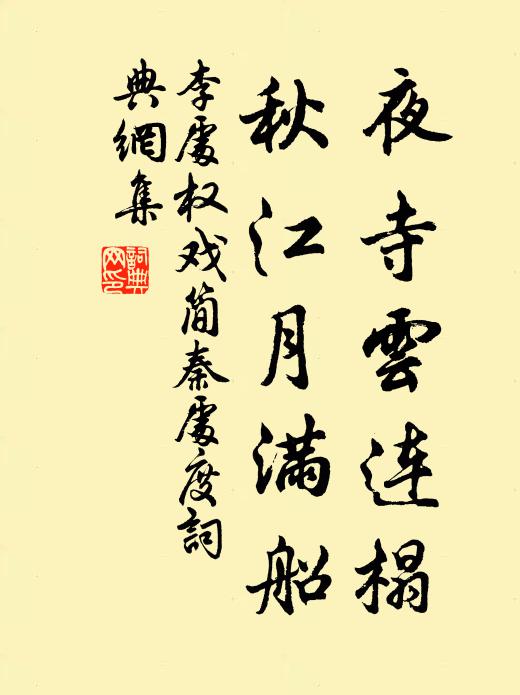 夜寺雲連榻
秋江月满船
李處权戏简秦處度詞
典網集
詞典
网印